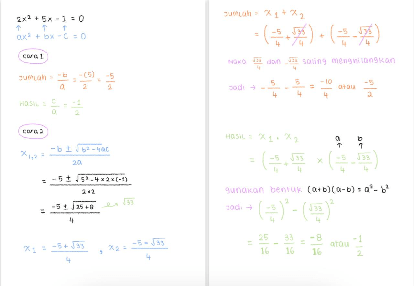 2x² + 5x - 1 = 0
↑ ↑ ↑
ax² + bx - c = 0
cara 1
Jumlah = -b/a = -(5)/2 = -5/2
Hasil = c/a = -1/2
cara 2
x₁,₂ = (-b ± √(b²-4ac))/2a
= (-5 ± √(5²-4×2×(-1)))/(2×2)
= (-5 ± √(25+8))/4 → √33
x₁ = (-5+√33)/4 , x₂ = (-5-√33)/4
Jumlah = x₁ + x₂
= (-5/4 √33/4) + (-5/4 - √33/4)
maka √33/4 dan √33/4 saling menghilangkan
Jadi → -5/4 - 5/4 = -10/4 atau -5/2
Hasil = x₁ . x₂
a b
↑ ↑
= (-5/4 + √33/4) × (-5/4 - √33/4)
gunakan bentuk (a+b)(a-b) = a² - b²
Jadi → (-5/4)² - (√33/4)²
= 25/16 - 33/16 = -8/16 atau -1/2